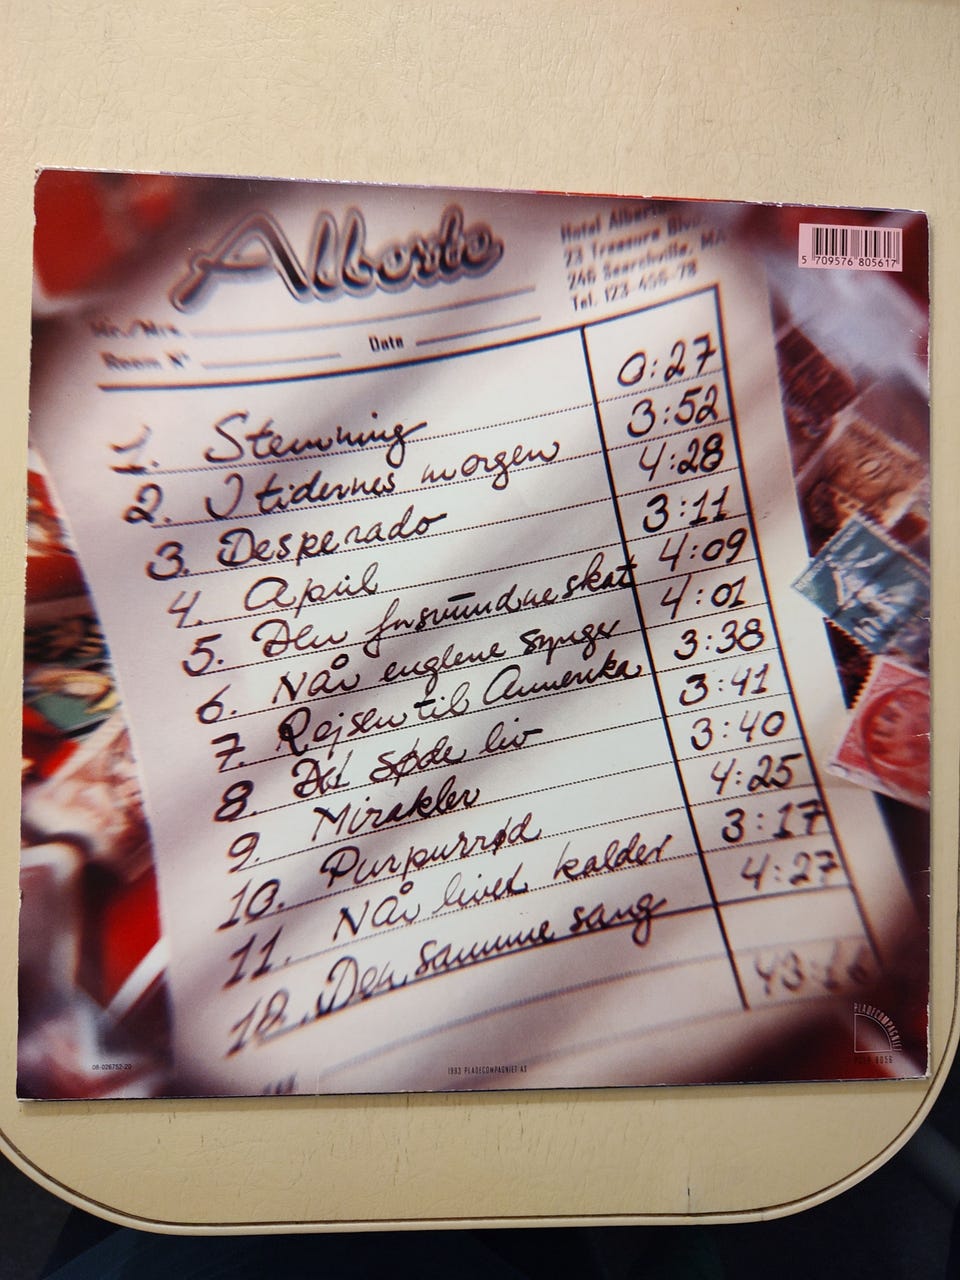 Alberte
Hotel Alberte
23 Treasure Blvd.
246 Searchville, MA
Tel. 123-456-78
Mr./Mrs.
Room Nº Date
1. Stemning 0:27
2. I tidernes morgen 3:52
3. Desperado 4:28
4. April 3:11
5. Den forsvundne skat 4:09
6. Når englene synger 4:01
7. Rejsen til Amerika 3:38
8. Det søde liv 3:41
9. Mirakler 3:40
10. Purpurrød 4:25
11. Når livet kalder 3:17
12. Den samme sang 4:27
5 709576 805617
PLADECOMPAGNIET
8056
08-026752-20
1993 PLADECOMPAGNIET AS